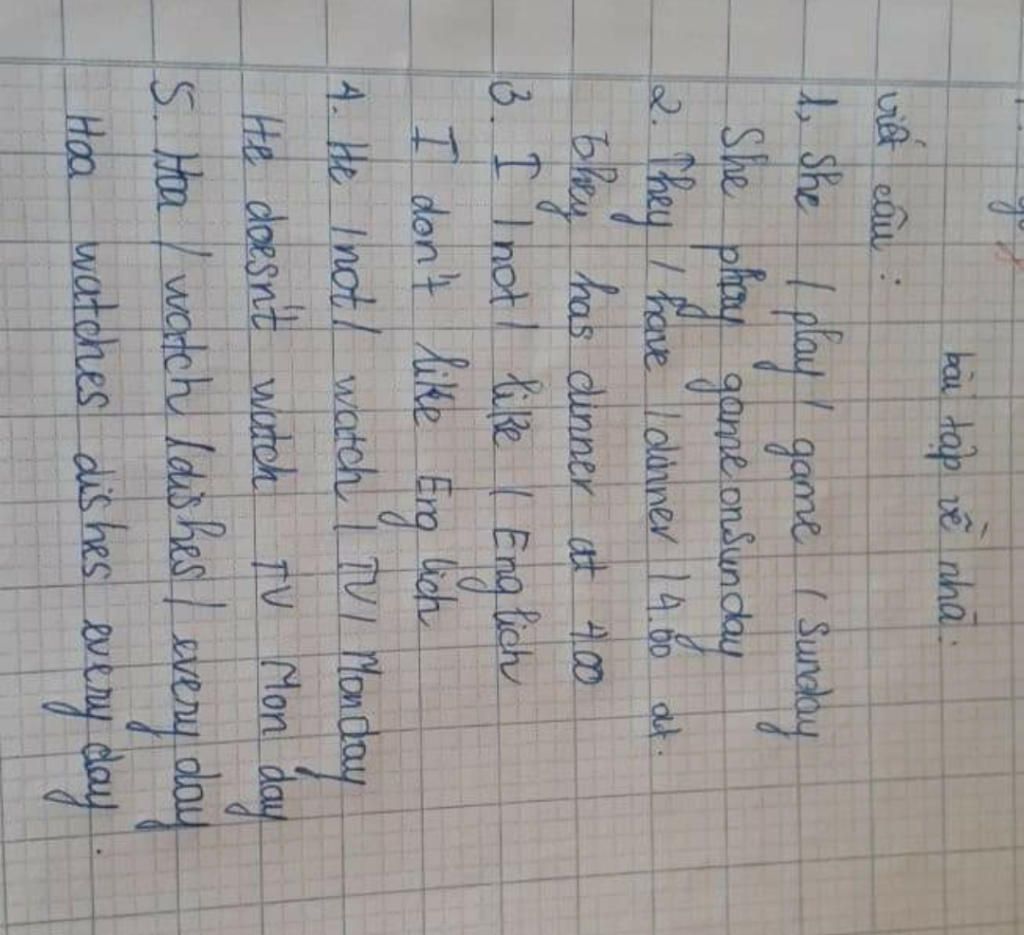 bài tập về nhà:
viết câu:
1, She / play / game / Sunday
She play game on Sunday
2. They / have / dinner / 4.00 at.
they has dinner at 400
3. I / not / like / Englich
I don't like Englich
4. He / not / watch / TV / Monday
He doesn't watch TV Mon day
5. Hoa / watch / dishes / every day
Hoa watches dishes every day.